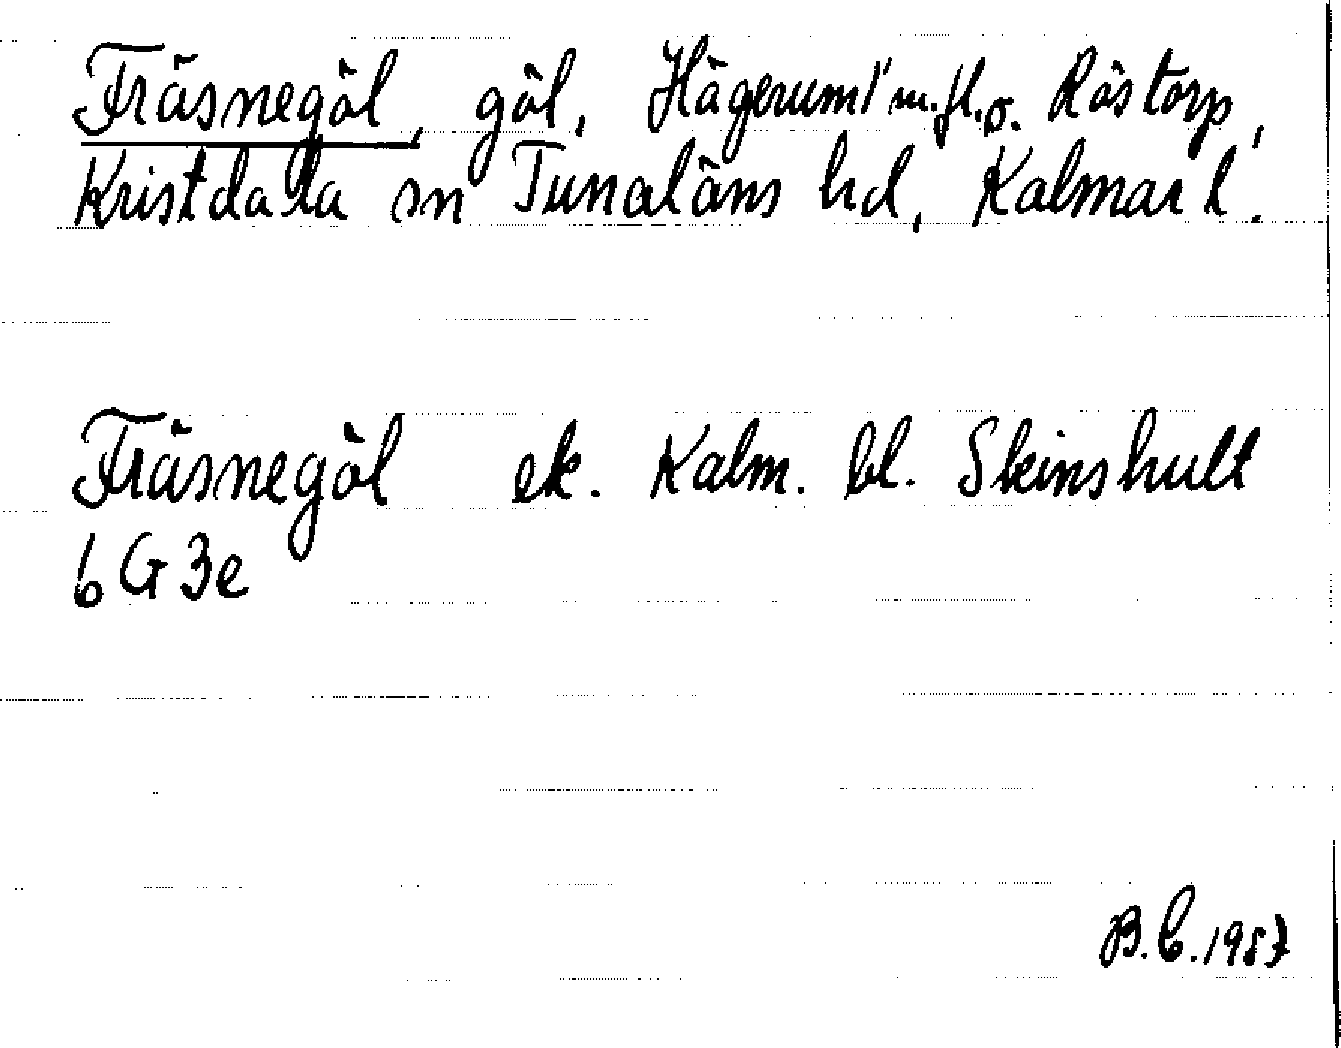 Fräsnegöl, göl, Hägerum 1 m.fl. o. Råstorp,
Kristdala sn Tunaläns hd, Kalmar l.
Fräsnegöl ek. Kalm. bl. Skinshult
6G 3e
B.C. 1987